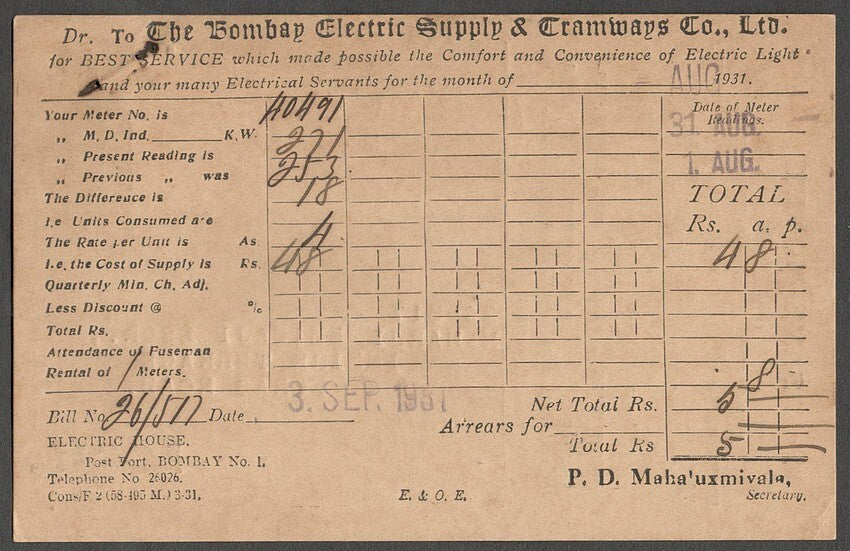 Dr. To The Bombay Electric Supply & Tramways Co., Ltd.
for BEST SERVICE which made possible the Comfort and Convenience of Electric Light
and your many Electrical Servants for the month of AUG 1931.
Your Meter No. is 40491 Date of Meter Readings.
„ M. D. Ind. K.W. 31 AUG.
„ Present Reading is 271
„ Previous „ was 253 1. AUG.
The Difference is 18 TOTAL
i.e Units Consumed are Rs. a. p.
The Rate per Unit is As. 4
I.e. the Cost of Supply is Rs. 48 4 8
Quarterly Min. Ch. Adj.
Less Discount @ %
Total Rs.
Attendance of Fuseman
Rental of 1 Meters. 8
Bill No. 26/517 Date 3. SEP. 1931 Net Total Rs. 5
Arrears for
Total Rs 5
ELECTRIC HOUSE,
Post Fort, BOMBAY No. 1.
Telephone No 26026.
Cons/F 2 (58-495 M.) 3-31.
E. & O. E.
P. D. Maha'uxmivala,
Secretary.